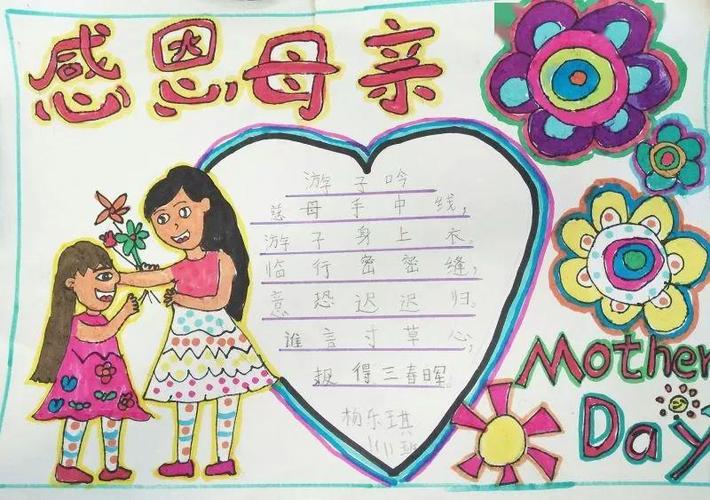 感恩母亲
游子吟
慈母手中线，
游子身上衣。
临行密密缝，
意恐迟迟归。
谁言寸草心，
报得三春晖。
杨乐琪
Mother
Day